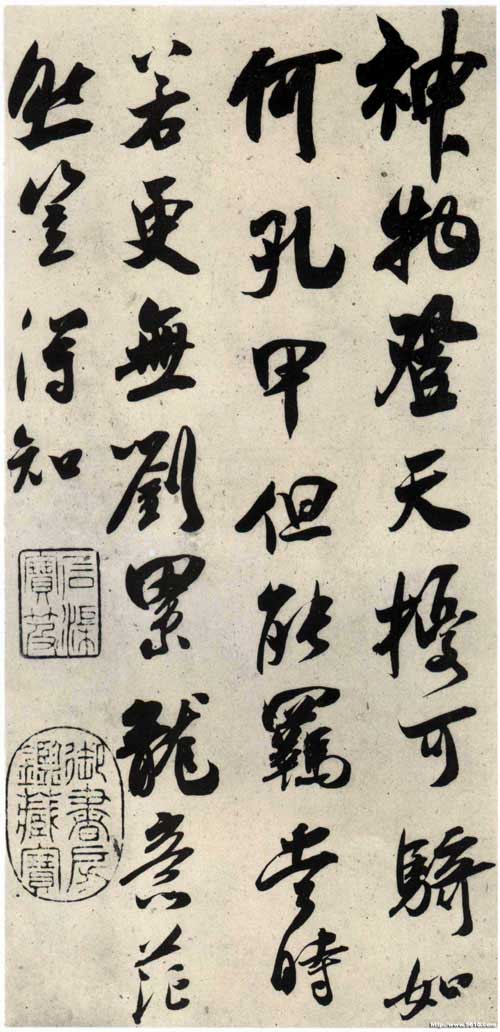 神物登天擾可騎如
何孔甲但能羈當時
若更無劉累龍意茫
然豈得知
石渠寶笈
御書房鑑藏寶
http://www.9610.com